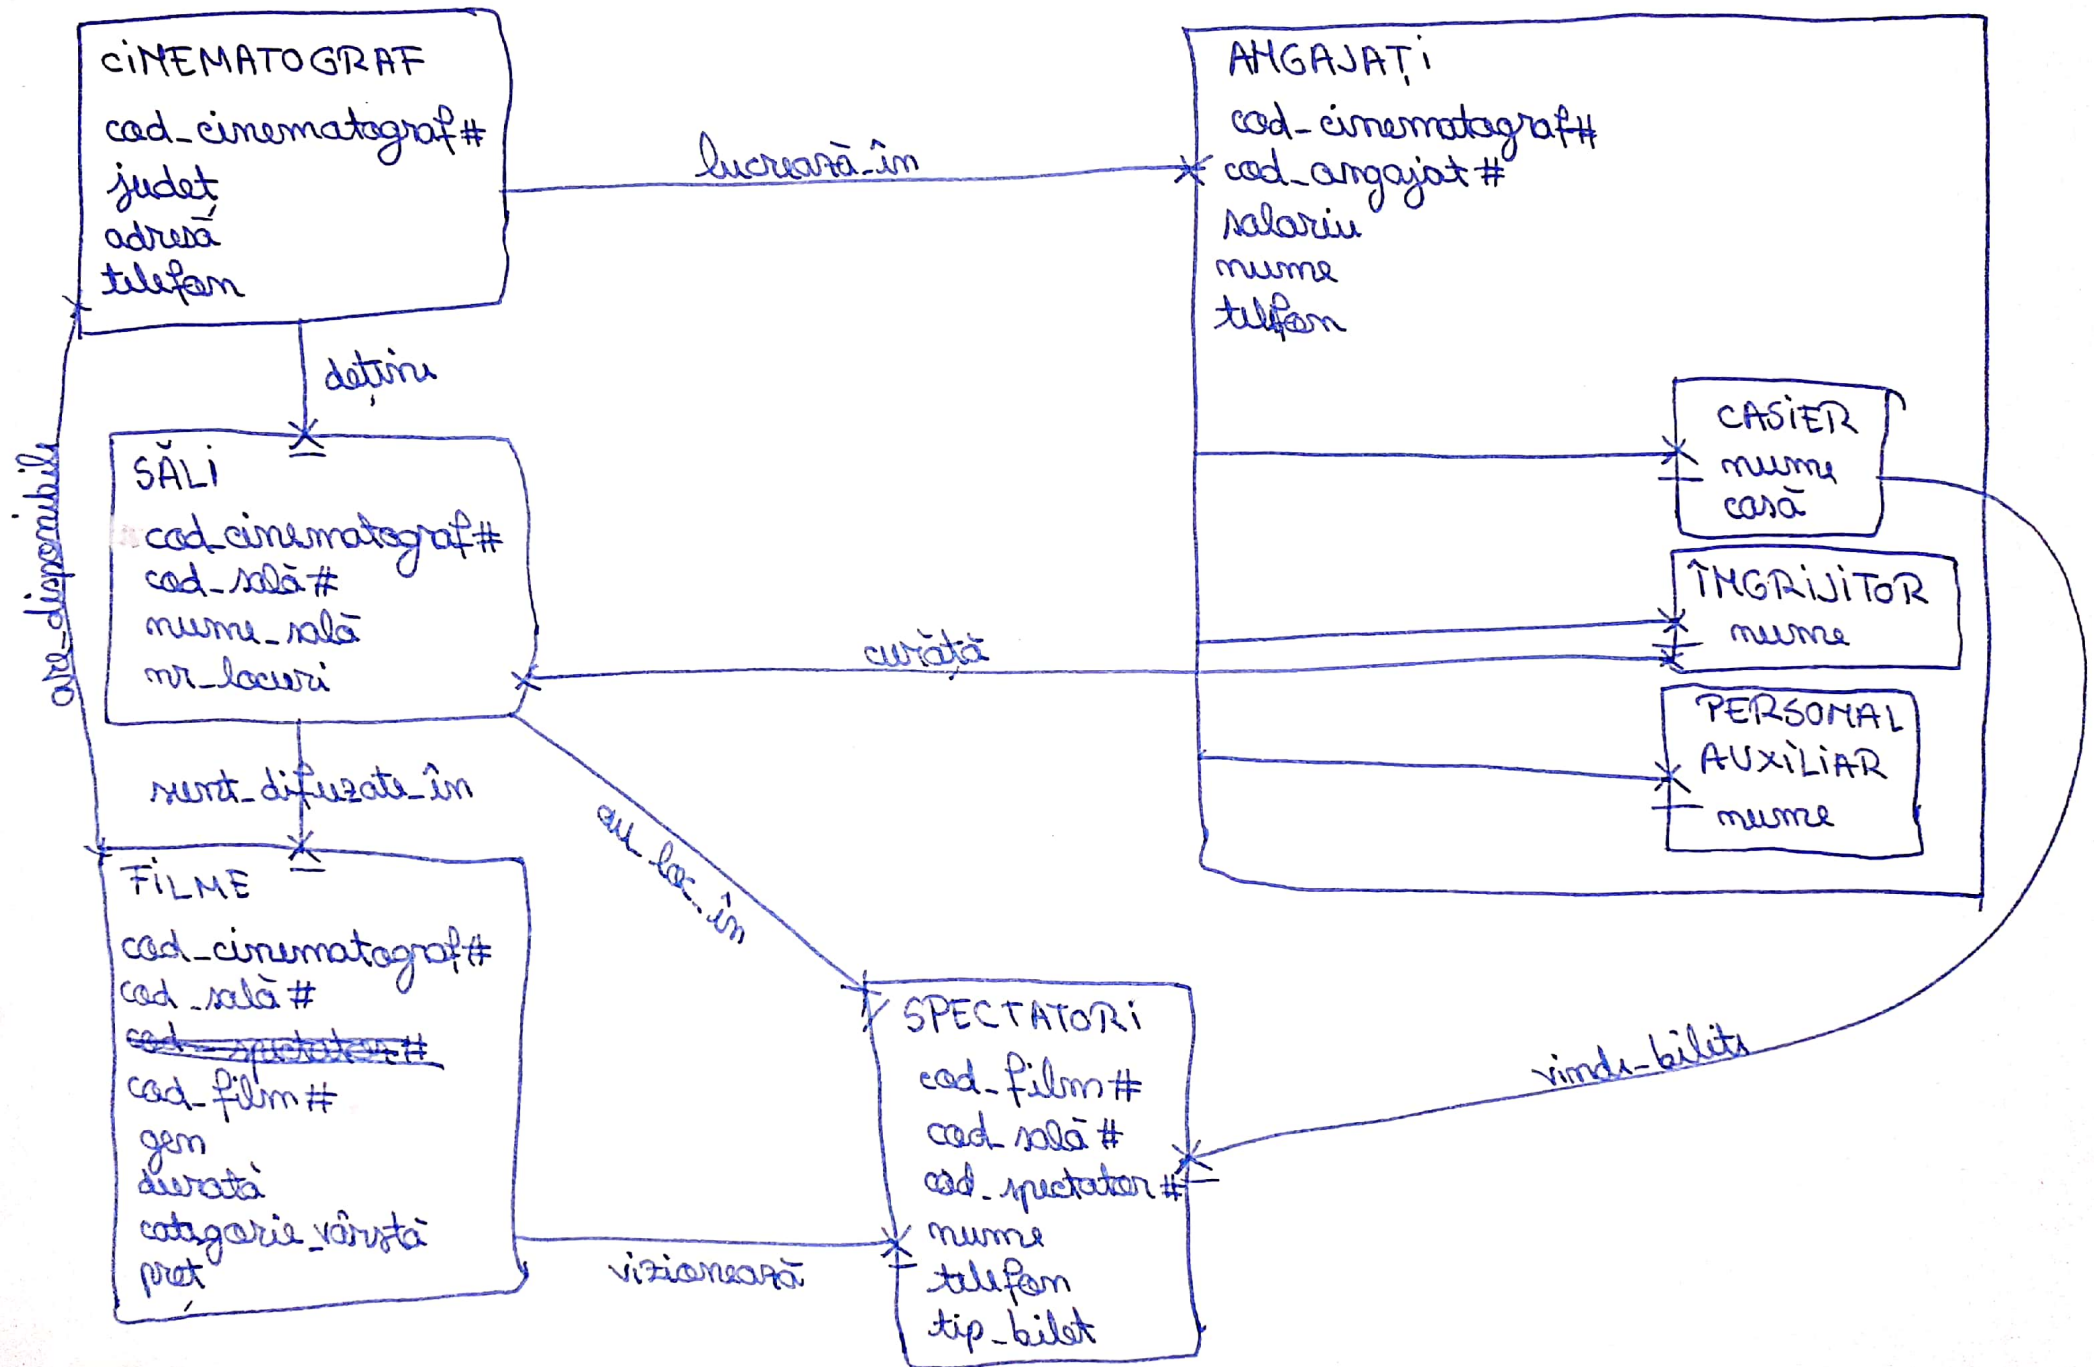 CINEMATOGRAF
cod_cinematograf#
județ
adresă
telefon
lucrează_în
ANGAJAȚI
cod_cinematograf#
cod_angajat#
salariu
nume
telefon
CASIER
nume
casă
ÎNGRIJITOR
nume
PERSONAL
AUXILIAR
nume
deține
are_disponibile
SĂLI
cod_cinematograf#
cod_sală#
nume_sală
nr_locuri
curăță
sunt_difuzate_în
au_loc_în
FILME
cod_cinematograf#
cod_sală#
cod_spectator#
cod_film#
gen
durată
categorie_vârstă
preț
vizionează
SPECTATORI
cod_film#
cod_sală#
cod_spectator#
nume
telefon
tip_bilet
vinde_bilete